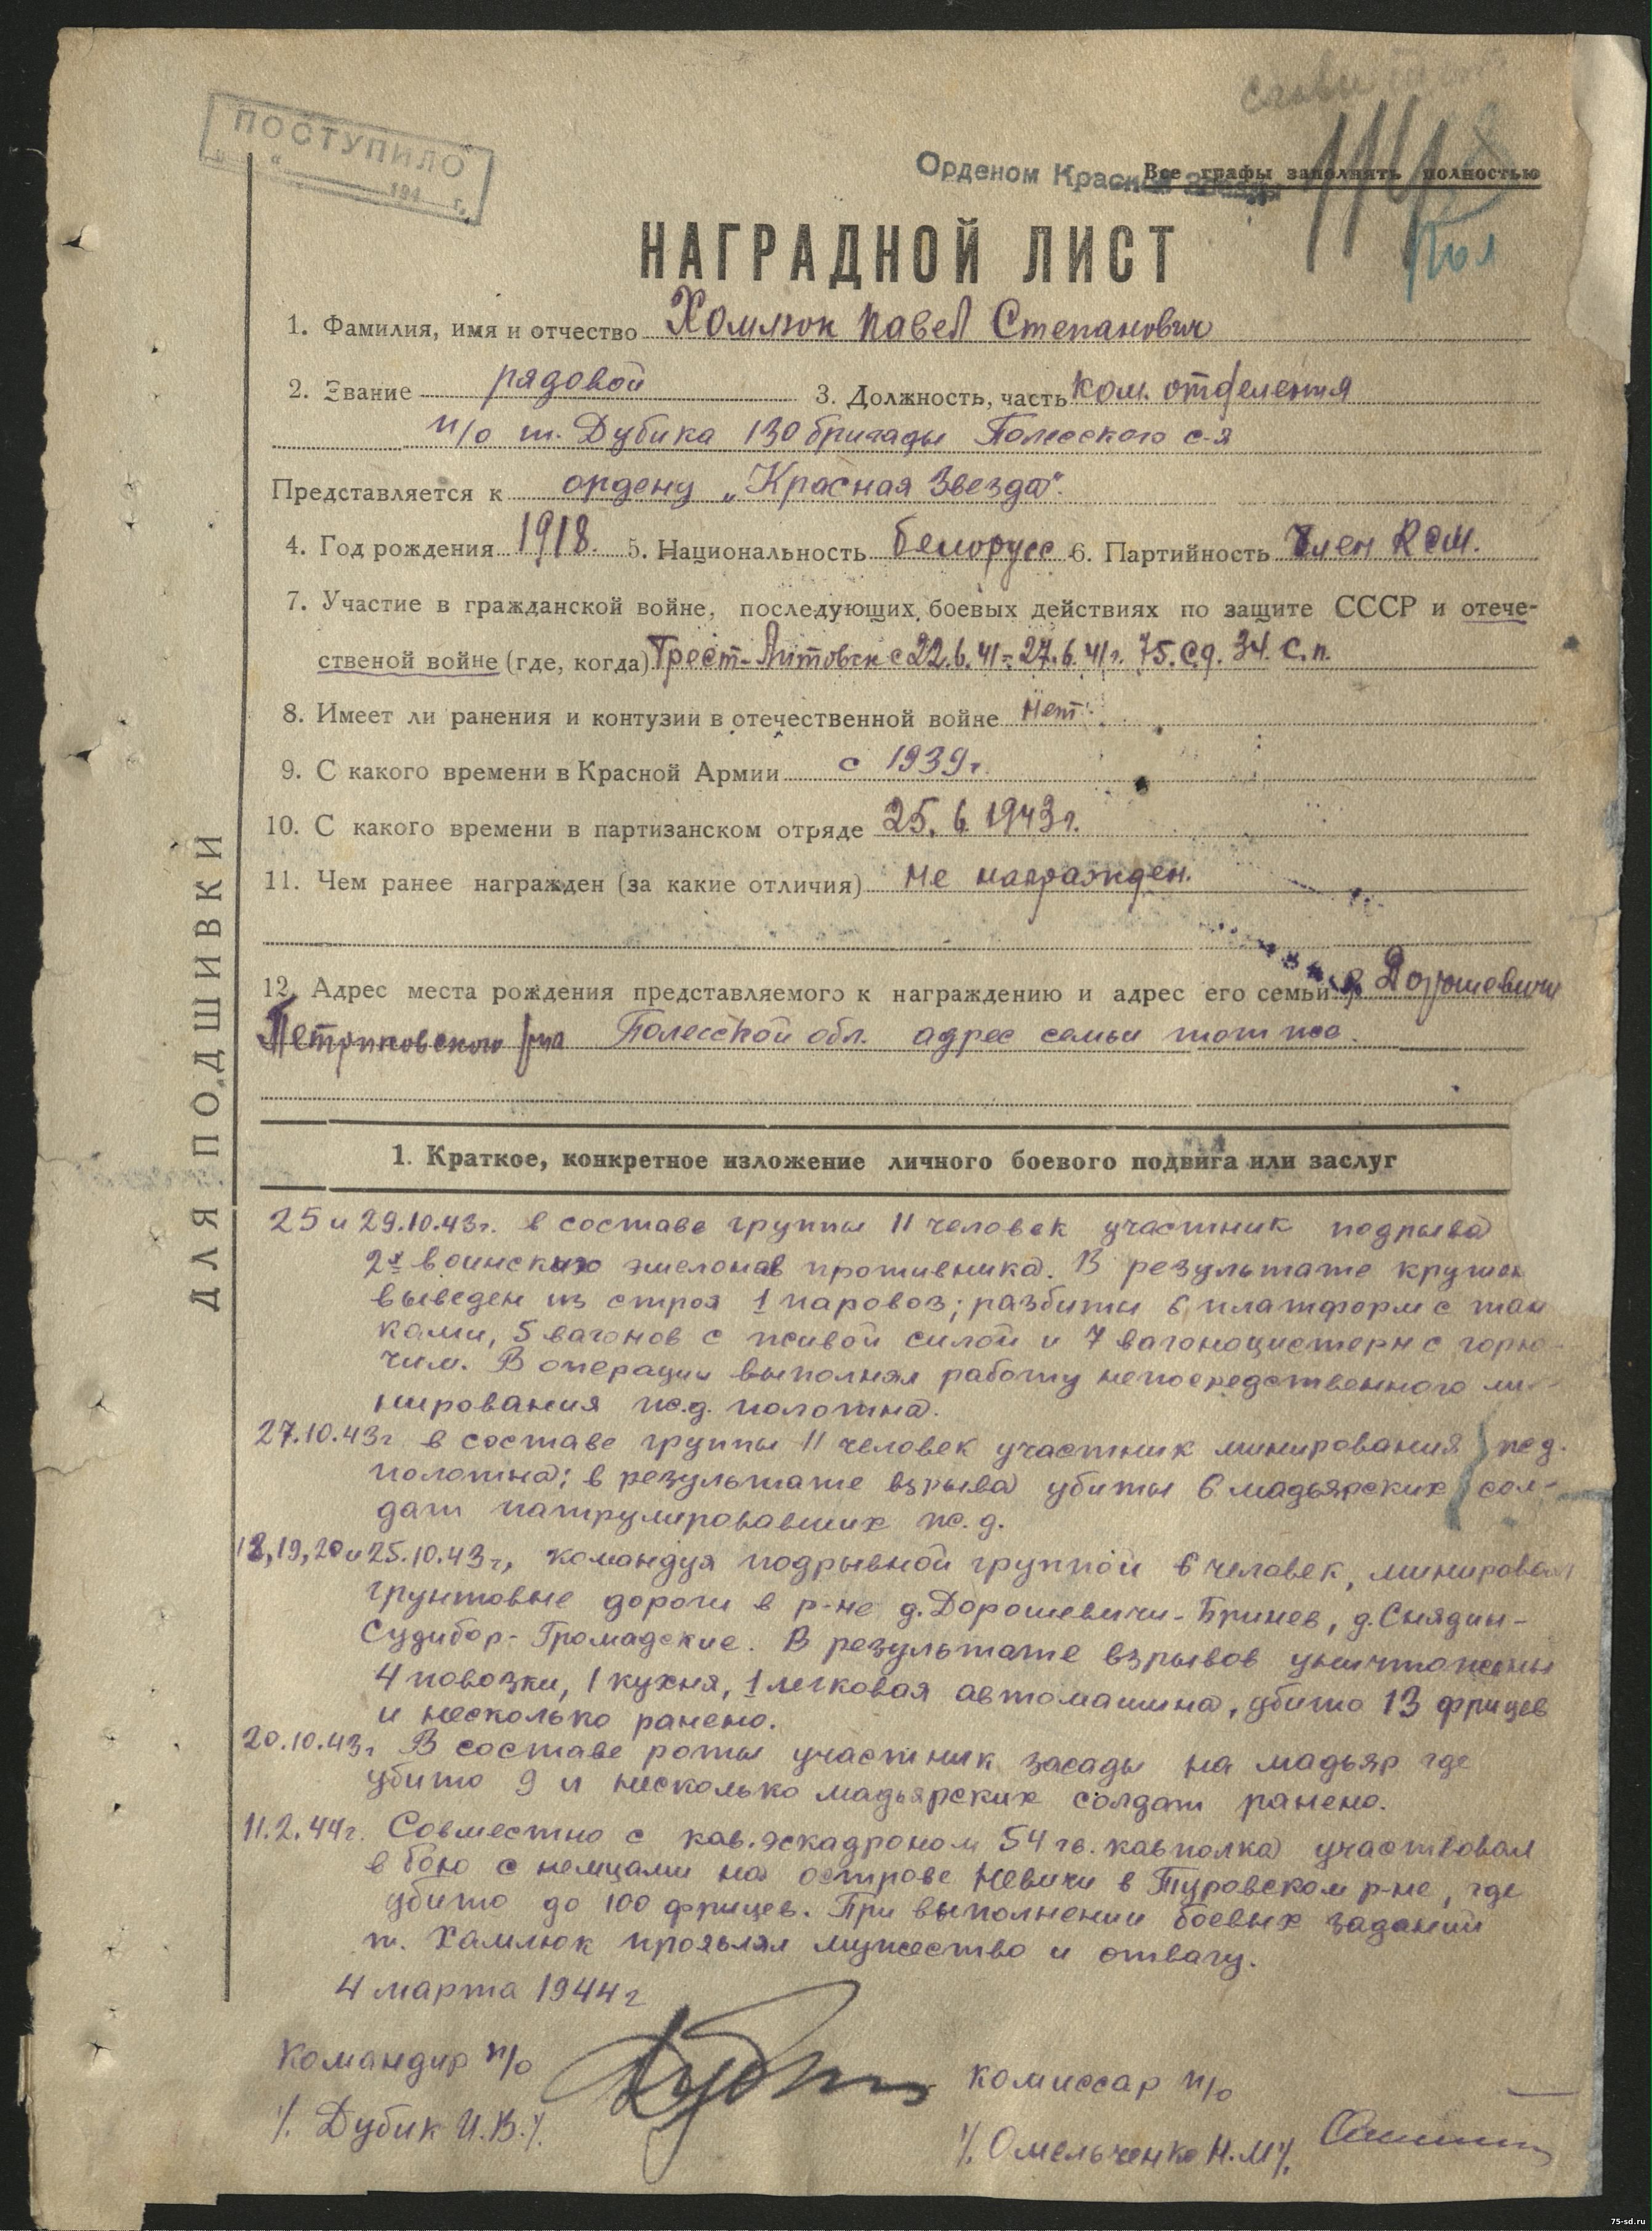 ПОСТУПИЛО
" " 194 г.
Орденом Красной Звезды
Все графы заполнять полностью
НАГРАДНОЙ ЛИСТ
1. Фамилия, имя и отчество Хомлюк Павел Степанович
2. Звание рядовой 3. Должность, часть ком. отделения
п/о т. Дубика 130 бригады Полесского с-я
Представляется к ордену „Красная Звезда".
4. Год рождения 1918. 5. Национальность белорусс 6. Партийность Член КСМ.
7. Участие в гражданской войне, последующих боевых действиях по защите СССР и отече-
ственой войне (где, когда) Брест-Литовск с 22.6.41-27.6.41г. 75.с.д. 34. с.п.
8. Имеет ли ранения и контузии в отечественной войне Нет.
9. С какого времени в Красной Армии с 1939г.
10. С какого времени в партизанском отряде 25.6.1943г.
11. Чем ранее награжден (за какие отличия) Не награжден.
12. Адрес места рождения представляемого к награждению и адрес его семьи д. Дорошевичи
Петриковского р-на Полесской обл. адрес семьи тот же.
ДЛЯ ПОДШИВКИ
1. Краткое, конкретное изложение личного боевого подвига или заслуг
25 и 29.10.43г. в составе группы 11 человек участник подрыва
2х воинских эшелонов противника. В результате крушен
выведен из строя 1 паровоз; разбиты 6 платформ с тан
ками, 5 вагонов с живой силой и 7 вагоноцистерн с горю-
чим. В операции выполнял работу непосредственного ми-
нирования ж.д. полотна.
27.10.43г в составе группы 11 человек участник минирования ж.д.
полотна; в результате взрыва убиты 6 мадьярских сол-
дат патрулировавших ж.д.
18,19,20 и 25.10.43г, командуя подрывной группой 6 человек, минировал
грунтовые дороги в р-не д. Дорошевичи-Бринев, д. Снядин-
Судибор-Громадские. В результате взрывов уничтожены
4 повозки, 1 кухня, 1 легковая автомашина, убито 13 фрицев
и несколько ранено.
20.10.43г В составе роты участник засады на мадьяр где
убито 9 и несколько мадьярских солдат ранено.
11.2.44г. Совместно с кав.эскадроном 54 гв. кавполка участвовал
в бою с немцами на острове Невичи в Туровском р-не, где
убито до 100 фрицев. При выполнении боевых заданий
т. Хамлюк проявлял мужество и отвагу.
4 марта 1944г
Командир п/о
/. Дубик И.В./.
комиссар п/о
/. Омельченко Н.М/.
75-sd.ru